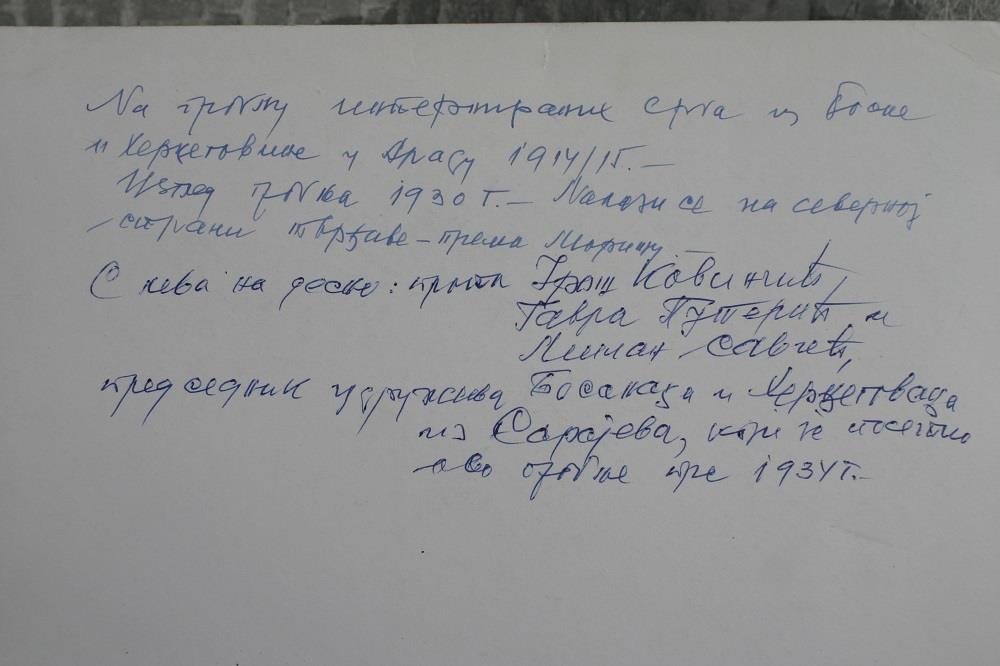 На гробљу интернираних Срба из Босне
и Херцеговине у Араду 1914/15.-
Изглед гробља 1930 г.- Налази се на северној
страни тврђаве - према Моришу -
С лева на десно: прота Урош Ковинчић,
Гавра Путерић и
Милан Савчић,
председник удружења Босанаца и Херцеговаца
из Сарајева, који је посетио
ово гробље пре 1934 г.-